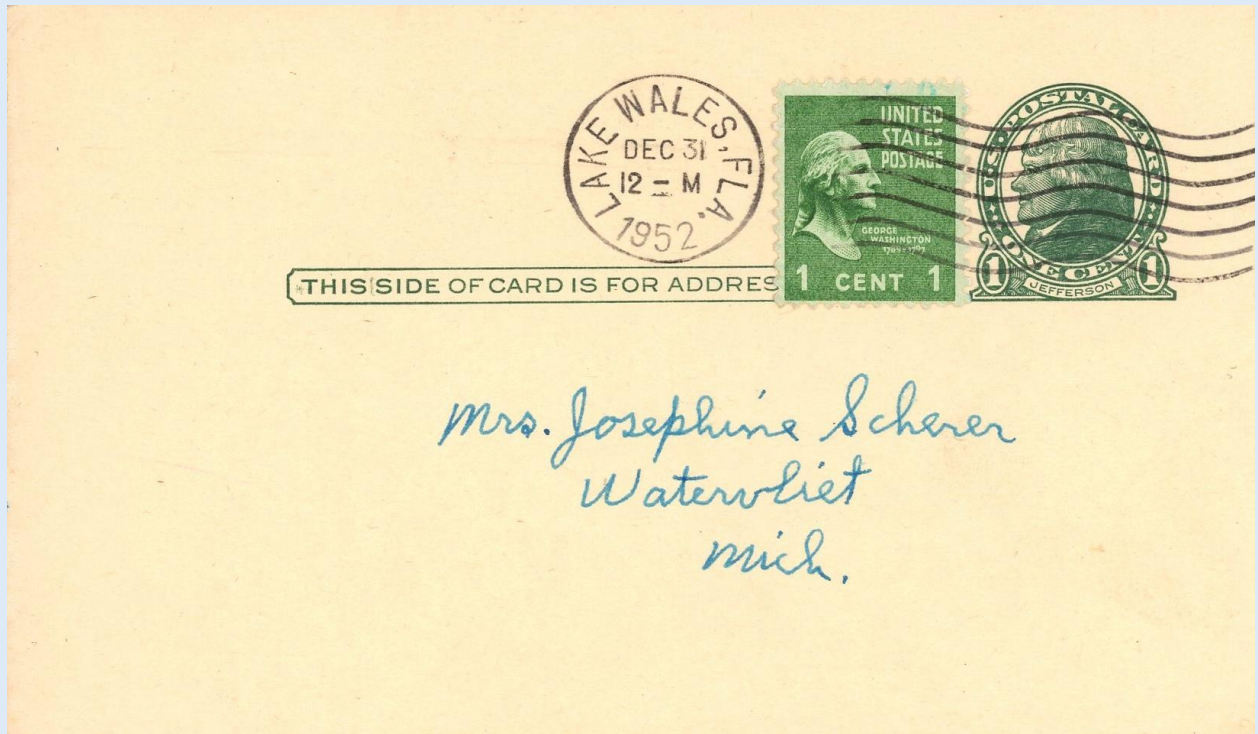 LAKE WALES, FLA.
DEC 31
12 - M
1952
UNITED
STATES
POSTAGE
GEORGE
WASHINGTON
1789-1797
1 CENT 1
U.S. POSTAL CARD
ONE CENT
1 JEFFERSON 1
THIS SIDE OF CARD IS FOR ADDRES
Mrs. Josephine Scherer
Watervliet
Mich.